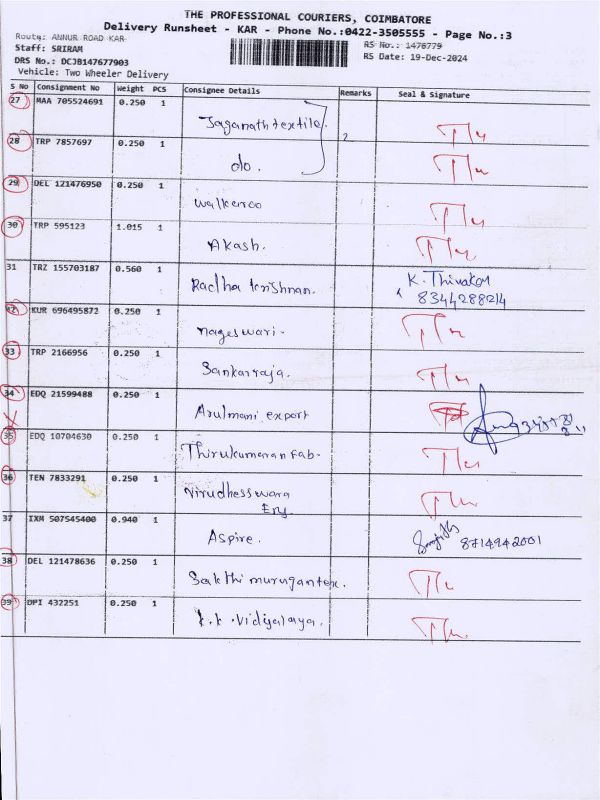 THE PROFESSIONAL COURIERS, COIMBATORE
Delivery Runsheet - KAR - Phone No.:0422-3505555 - Page No.:3
Route: ANNUR ROAD KAR
RS No.: 1478779
Staff: SRIRAM
RS Date: 19-Dec-2024
DRS No.: DCJB147677903
Vehicle: Two Wheeler Delivery
S No Consignment No Weight PCS Consignee Details Remarks Seal & Signature
27 MAA 705524691 0.250 1
Jaganath textile.
28 TRP 7857697 0.250 1 2
do.
29 DEL 121476950 0.250 1
walkeroo
30 TRP 595123 1.015 1
Akash.
31 TRZ 155703187 0.560 1 K. Thivakar
Radha krishnan. 8344288214
KUR 696495872 0.250 1
nageswari.
33 TRP 2166956 0.250 1
Sankarraja.
34 EDQ 21599488 0.250 1
Arulmani export
35 EDQ 10704630 0.250 1
Thirukumaran Fab.
36 TEN 7833291 0.250 1
Virudhesswara
Ery.
37 IXM 507545400 0.940 1
Aspire. 8714942001
38 DEL 121478636 0.250 1
Sakthi murugantex.
39 DPI 432251 0.250 1
k.k. vidyalaya.